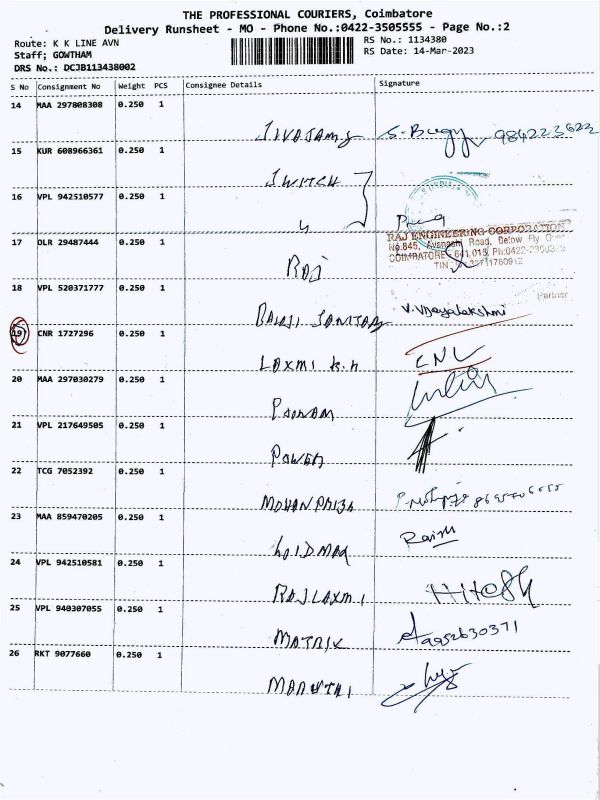 THE PROFESSIONAL COURIERS, Coimbatore
Delivery Runsheet - MO - Phone No.:0422-3505555 - Page No.:2
Route: K K LINE AVN
RS No.: 1134380
Staff; GOWTHAM
RS Date: 14-Mar-2023
DRS No.: DCJB113438002
S No Consignment No Weight PCS Consignee Details Signature
14 MAA 297808308 0.250 1
15 KUR 608966361 0.250 1
SWITCH
16 VPL 942510577 0.250 1
"
RAJ ENGINEERING CORPORATION
17 DLR 29487444 0.250 1
No.845, Avanashi Road, Below Fly
COIMBATORE
RAJ
18 VPL 520371777 0.250 1
Partner
BALAJI SANITARY V. Vijayalakshmi
19 CNR 1727296 0.250 1
LAXMI K.N CNL
20 MAA 297030279 0.250 1
POONAM
21 VPL 217649505 0.250 1
POWER
22 TCG 7052392 0.250 1
MOHANPRIYA
23 MAA 859470205 0.250 1
24 VPL 942510581 0.250 1
RAJLAXMI HITESH
25 VPL 940307055 0.250 1
MATRIX
26 RKT 9077660 0.250 1
MARUTHI